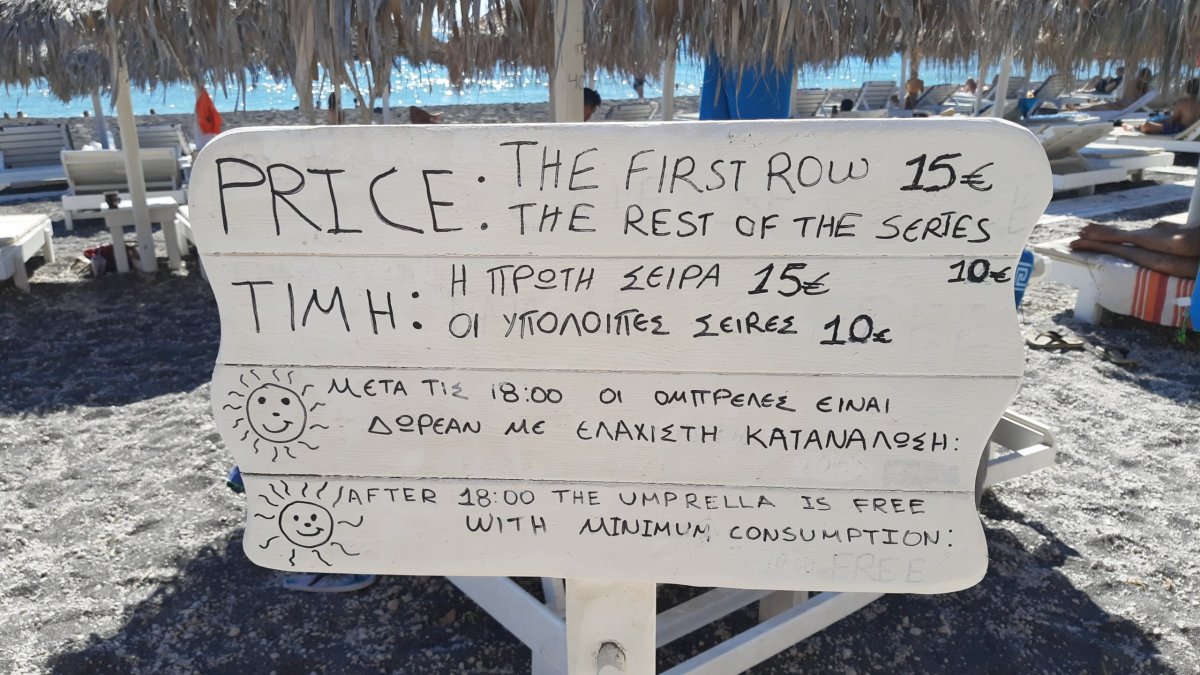 PRICE: THE FIRST ROW 15€
THE REST OF THE SERIES
10€
ΤΙΜΗ: Η ΠΡΩΤΗ ΣΕΙΡΑ 15€
ΟΙ ΥΠΟΛΟΙΠΕΣ ΣΕΙRΕΣ 10€
ΜΕΤΑ ΤΙΣ 18:00 ΟΙ ΟΜΠΡΕΛΕΣ ΕΙΝΑΙ
ΔΩΡΕΑΝ ΜΕ ΕΛΑΧΙΣΤΗ ΚΑΤΑΝΑΛΩΣΗ:
AFTER 18:00 THE UMPRELLA IS FREE
WITH MINIMUM CONSUMPTION:
FREE